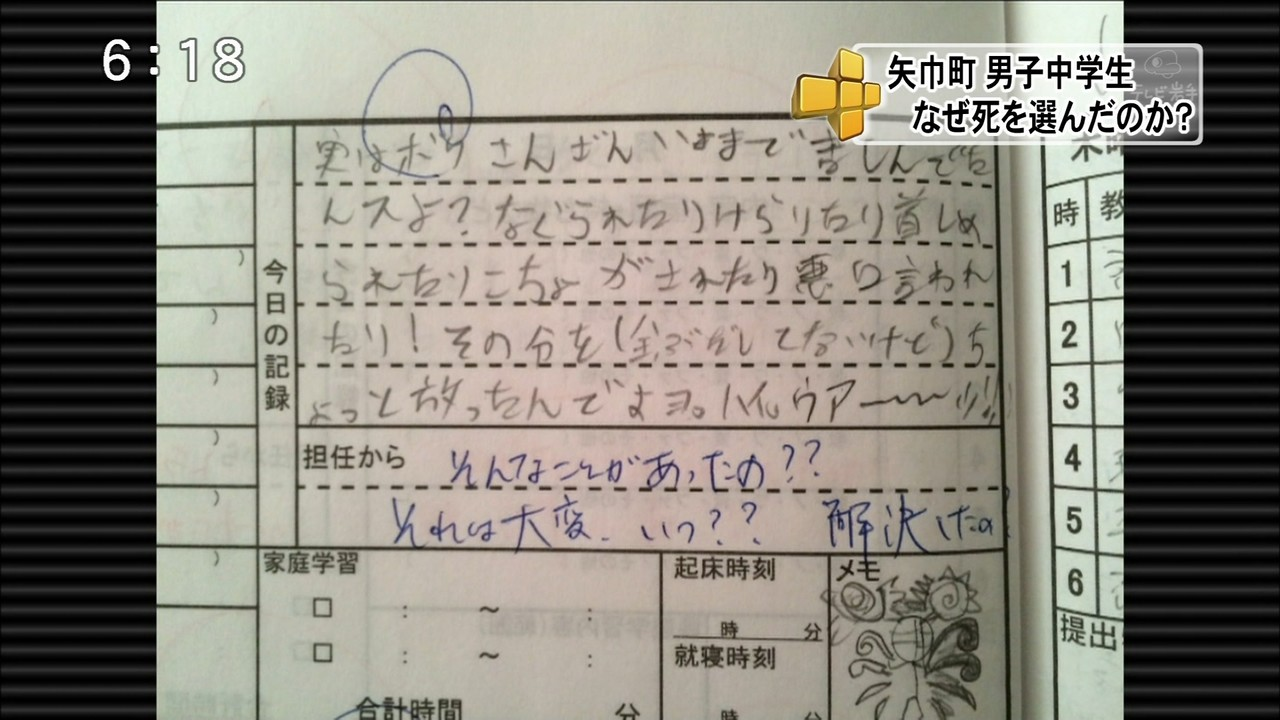 6:18
矢巾町 男子中学生
なぜ死を選んだのか?
テレビ岩手
今日の記録
実はボクさんざんいままで苦しんでた
んスよ?なぐられたりけられたり首しめ
られたりこちょがされたり悪口言われ
たり!その分を(全ぶだしてないけど)ち
ょっと放ったんですヨ。ハイ
担任から
そんなことがあったの??
それは大変、いつ?? 解決したの
家庭学習
□ : ~ :
□ : ~ :
合計時間 分
起床時刻
時 分
就寝時刻
時 分
メモ
時
1
2
3
4
5
6
提出